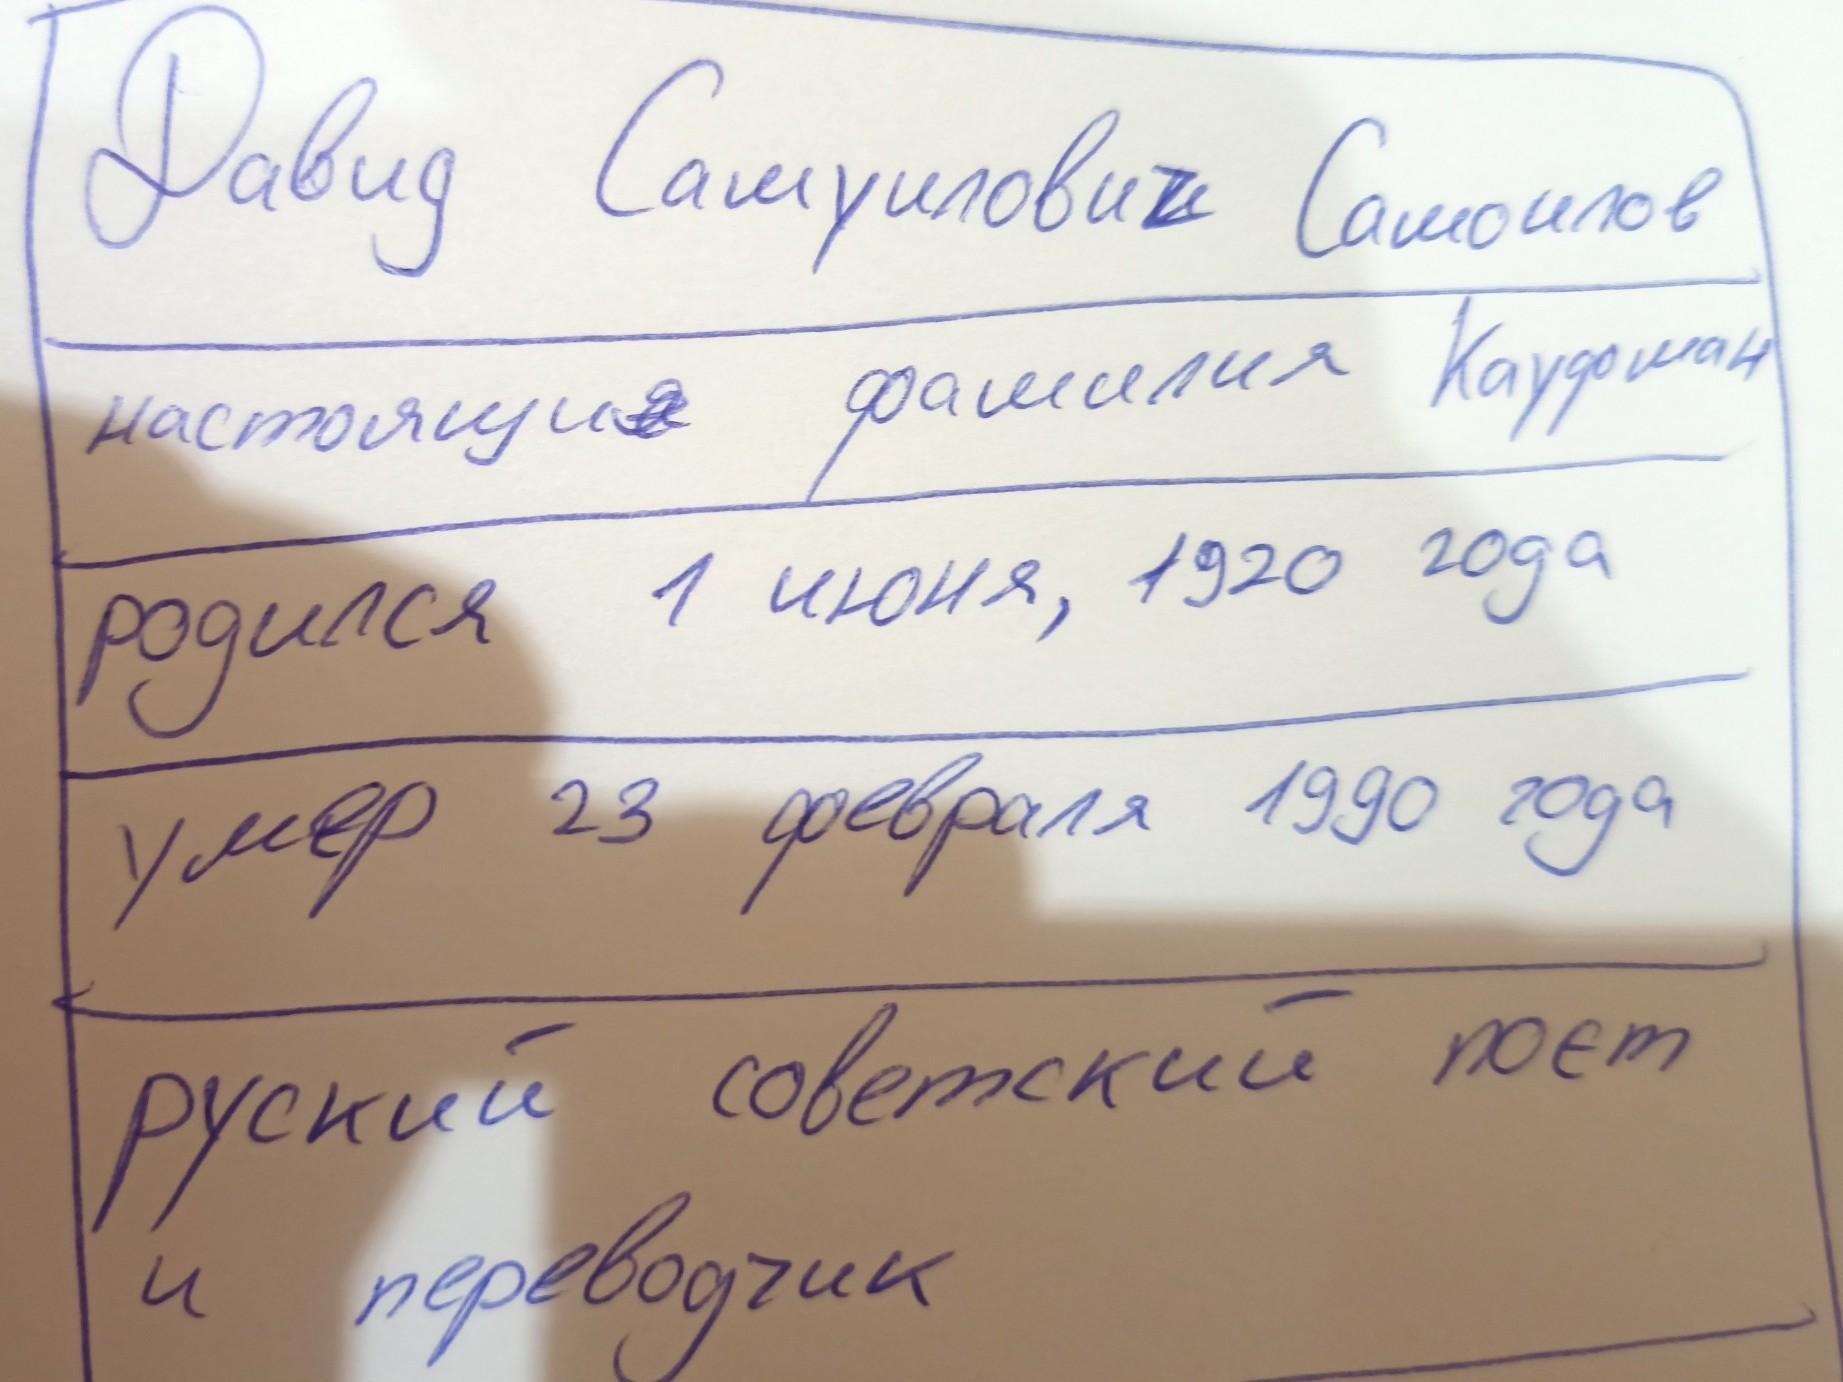 Давид Самуилович Самоилов
настоящия фамилия Каудоман
родился 1 июня, 1920 года
умер 23 февраля 1990 года
руский советский поет
и переводчик